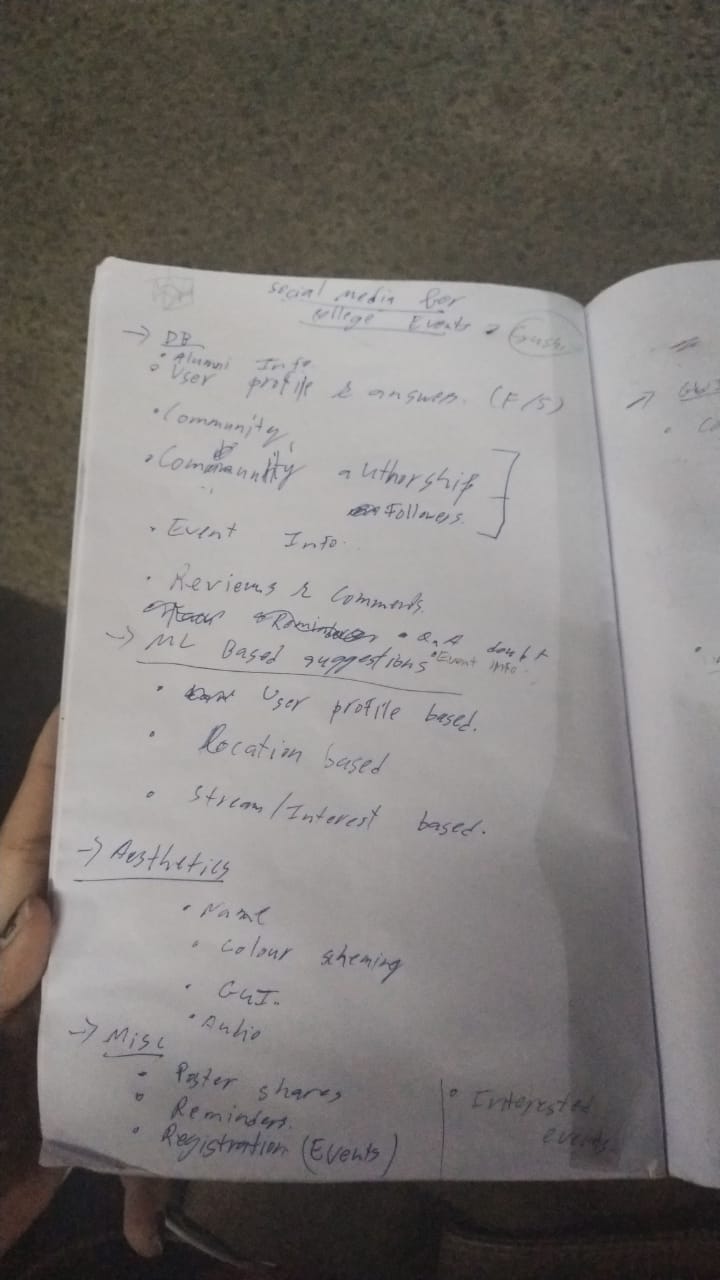 Social media for
college Events
→ DB
• Alumni Info
• User profile & answers. (F/S)
• Community
• Community authorship
Followers.
• Event Info.
• Reviews & Comments.
• QnA doubt
→ ML Based suggestions • Event Info.
• User profile based.
• Location based
• Stream/Interest based.
→ Aesthetics
• Name
• Colour scheming
• GUI.
• Audio
→ Misc
• Poster shares
• Reminders.
• Registration (Events)
• Interested
events.